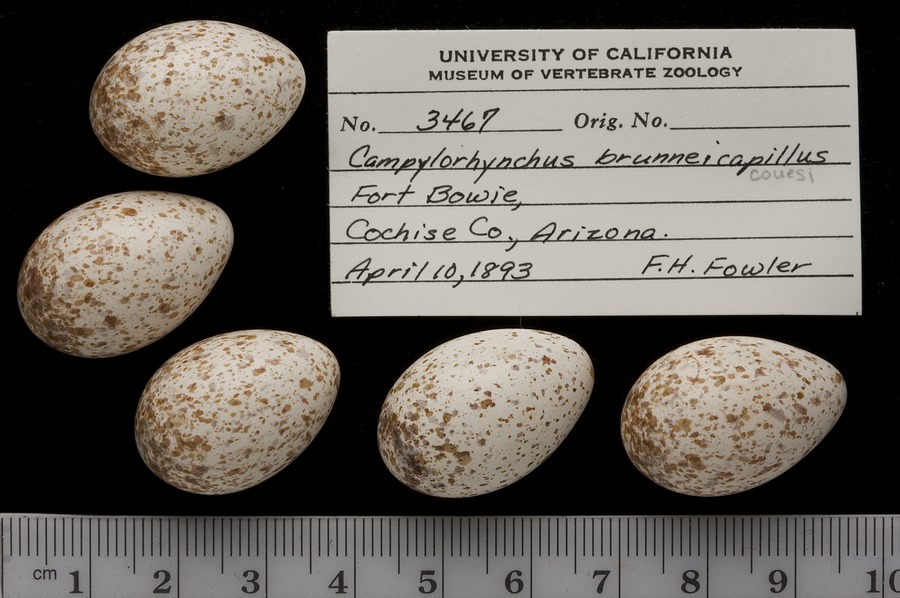 UNIVERSITY OF CALIFORNIA
MUSEUM OF VERTEBRATE ZOOLOGY
No. 3467 Orig. No.
Campylorhynchus brunneicapillus
couesi
Fort Bowie,
Cochise Co., Arizona.
April 10, 1893 F.H. Fowler
cm 1 2 3 4 5 6 7 8 9 10